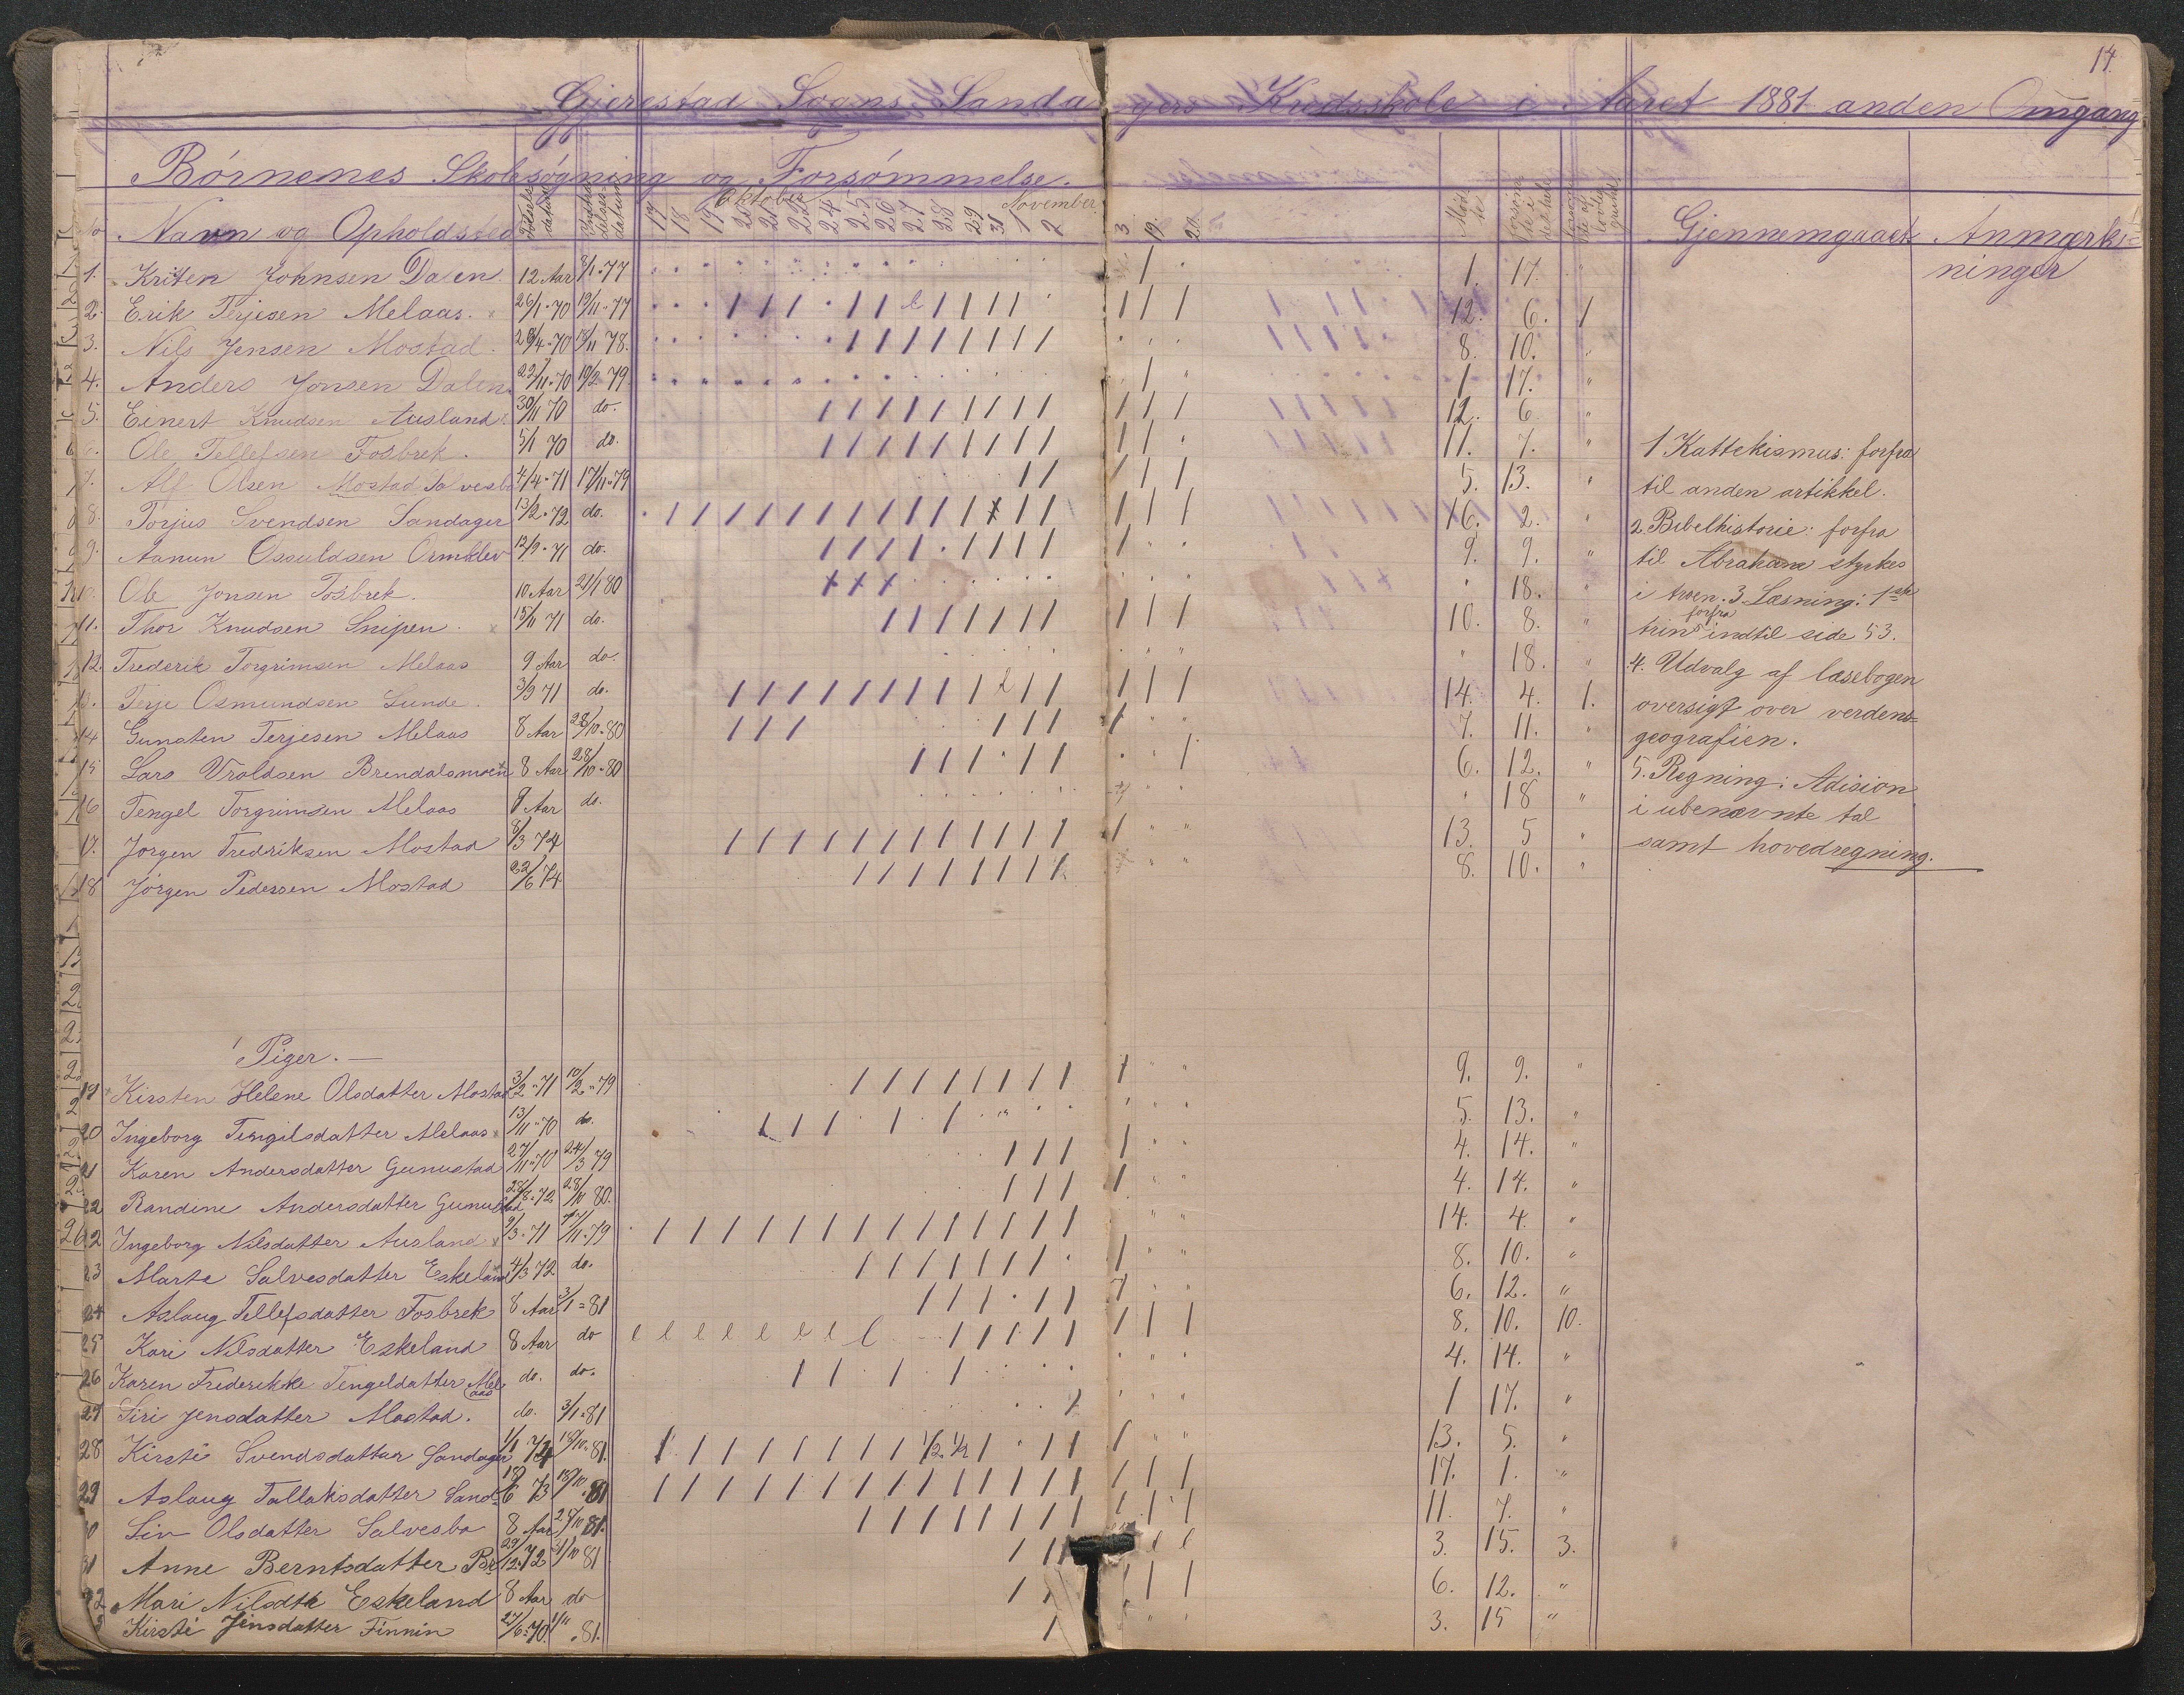 14.
Gjerestad Sogns Sandagers Kredsskole i Aaret 1881 anden Omgang
Børnenes Skolesøgning og Forsømmelse.
Oktober November
No Navn og Opholdsted Fødsels datum 17 18 19 20 21 22 24 25 26 27 28 29 31 1 2 3 19. 20. Mød te Gjennemgaaet Anmærk-
ninger
1. Kristen Johnsen Dalen. 12 Aar 3/1-77 1. 17. "
2. Erik Terjesen Melaas. 26/1-70 19/11-77 12. 6. 1
3. Nils Jensen Mostad. 28/4-70 18/11 78. 8. 10. "
4. Anders Jonsen Dalen 22/11-70 10/2-79. 1 17. "
5. Einert Knudsen Ausland 30/11 70 do. 12. 6. "
6. Ole Tellefsen Fosbrek. 5/1 70 do. 11. 7. "
7. Alf Olsen Mostad Salvesbo 4/4-71 17/11-79 5. 13. "
8. Torjus Svendsen Sandager 13/2-72 do. 16. 2. "
9. Aanun Osuldsen Ormklev 12/9-71 do. 9. 9. "
10. Ole Jonsen Fosbrek. 10 Aar 21/1 80 " 18. "
11. Thor Knudsen Snipen. 15/11 71 do. 10. 8. "
12. Frederik Torgrimsen Melaas 9 Aar do. " 18. "
13. Terje Osmundsen Lunde. 3/9 71 do. 14. 4. 1.
14 Gunsten Terjesen Melaas 8 Aar 28/10-80 7. 11. "
15 Lars Vraldsen Brendalsmoen 8 Aar 28/10-80 6. 12. "
16 Tengel Torgrimsen Melaas 8 Aar do. " 18 "
17. Jørgen Fredriksen Mostad 8/3 74 13. 5 "
18 Jørgen Pedersen Mostad 22/6 74 8. 10. "
1 Kattekismus: forfra
til anden artikkel.
2 Bibelhistorie: forfra
til Abraham styrkes
i troen. 3. Læsning: 1ste
trin forfra indtil side 53.
4. Udvalg af læsebogen
oversigt over verdens-
geografien.
5. Regning: Adision
i ubenævnte tal
samt hovedregning.
Piger. —
19 Kirsten Helene Olsdatter Mostad 3/2-71 10/2-79 9. 9. "
20 Ingeborg Tengilsdatter Melaas 13/11-70 do. 5. 13. "
21 Karen Andersdatter Gunustad 27/11-70 24/3 79 4. 14. "
22 Randine Andersdatter Gunustad 28/8-72 28/10 80. 4. 14. "
22 Ingeborg Nilsdatter Ausland 9/3-71 17/11-79 14. 4. "
23 Marte Salvesdatter Eskeland 4/3 72 do. 8. 10. "
24 Aslaug Tellefsdatter Fosbrek 8 Aar 3/1-81 6. 12. "
25 Kari Nilsdatter Eskeland 8 Aar do 8. 10. 10.
26 Karen Frederikke Tengeldatter Melaas do. do. 4. 14. "
27 Siri Jensdatter Mostad. do. 3/1-81 1 17. "
28 Kirsti Svendsdatter Sandager 1/1 74 18/10-81. 1/2 1/2 13. 5. "
29 Aslaug Tallaksdatter Sand- 18/6 73 18/10-81 17. 1. "
30 Siv Olsdatter Salvesbo 8 Aar 25/10 81. 11. 7. "
31 Anne Berntsdatter Br 29/12-72 31/10 81 3. 15. 3.
32 Mari Nilsdtr Eskeland 8 Aar do 6. 12. "
3 Kirsti Jensdatter Finnin 27/6-70. 1/11-81. 3. 15 "